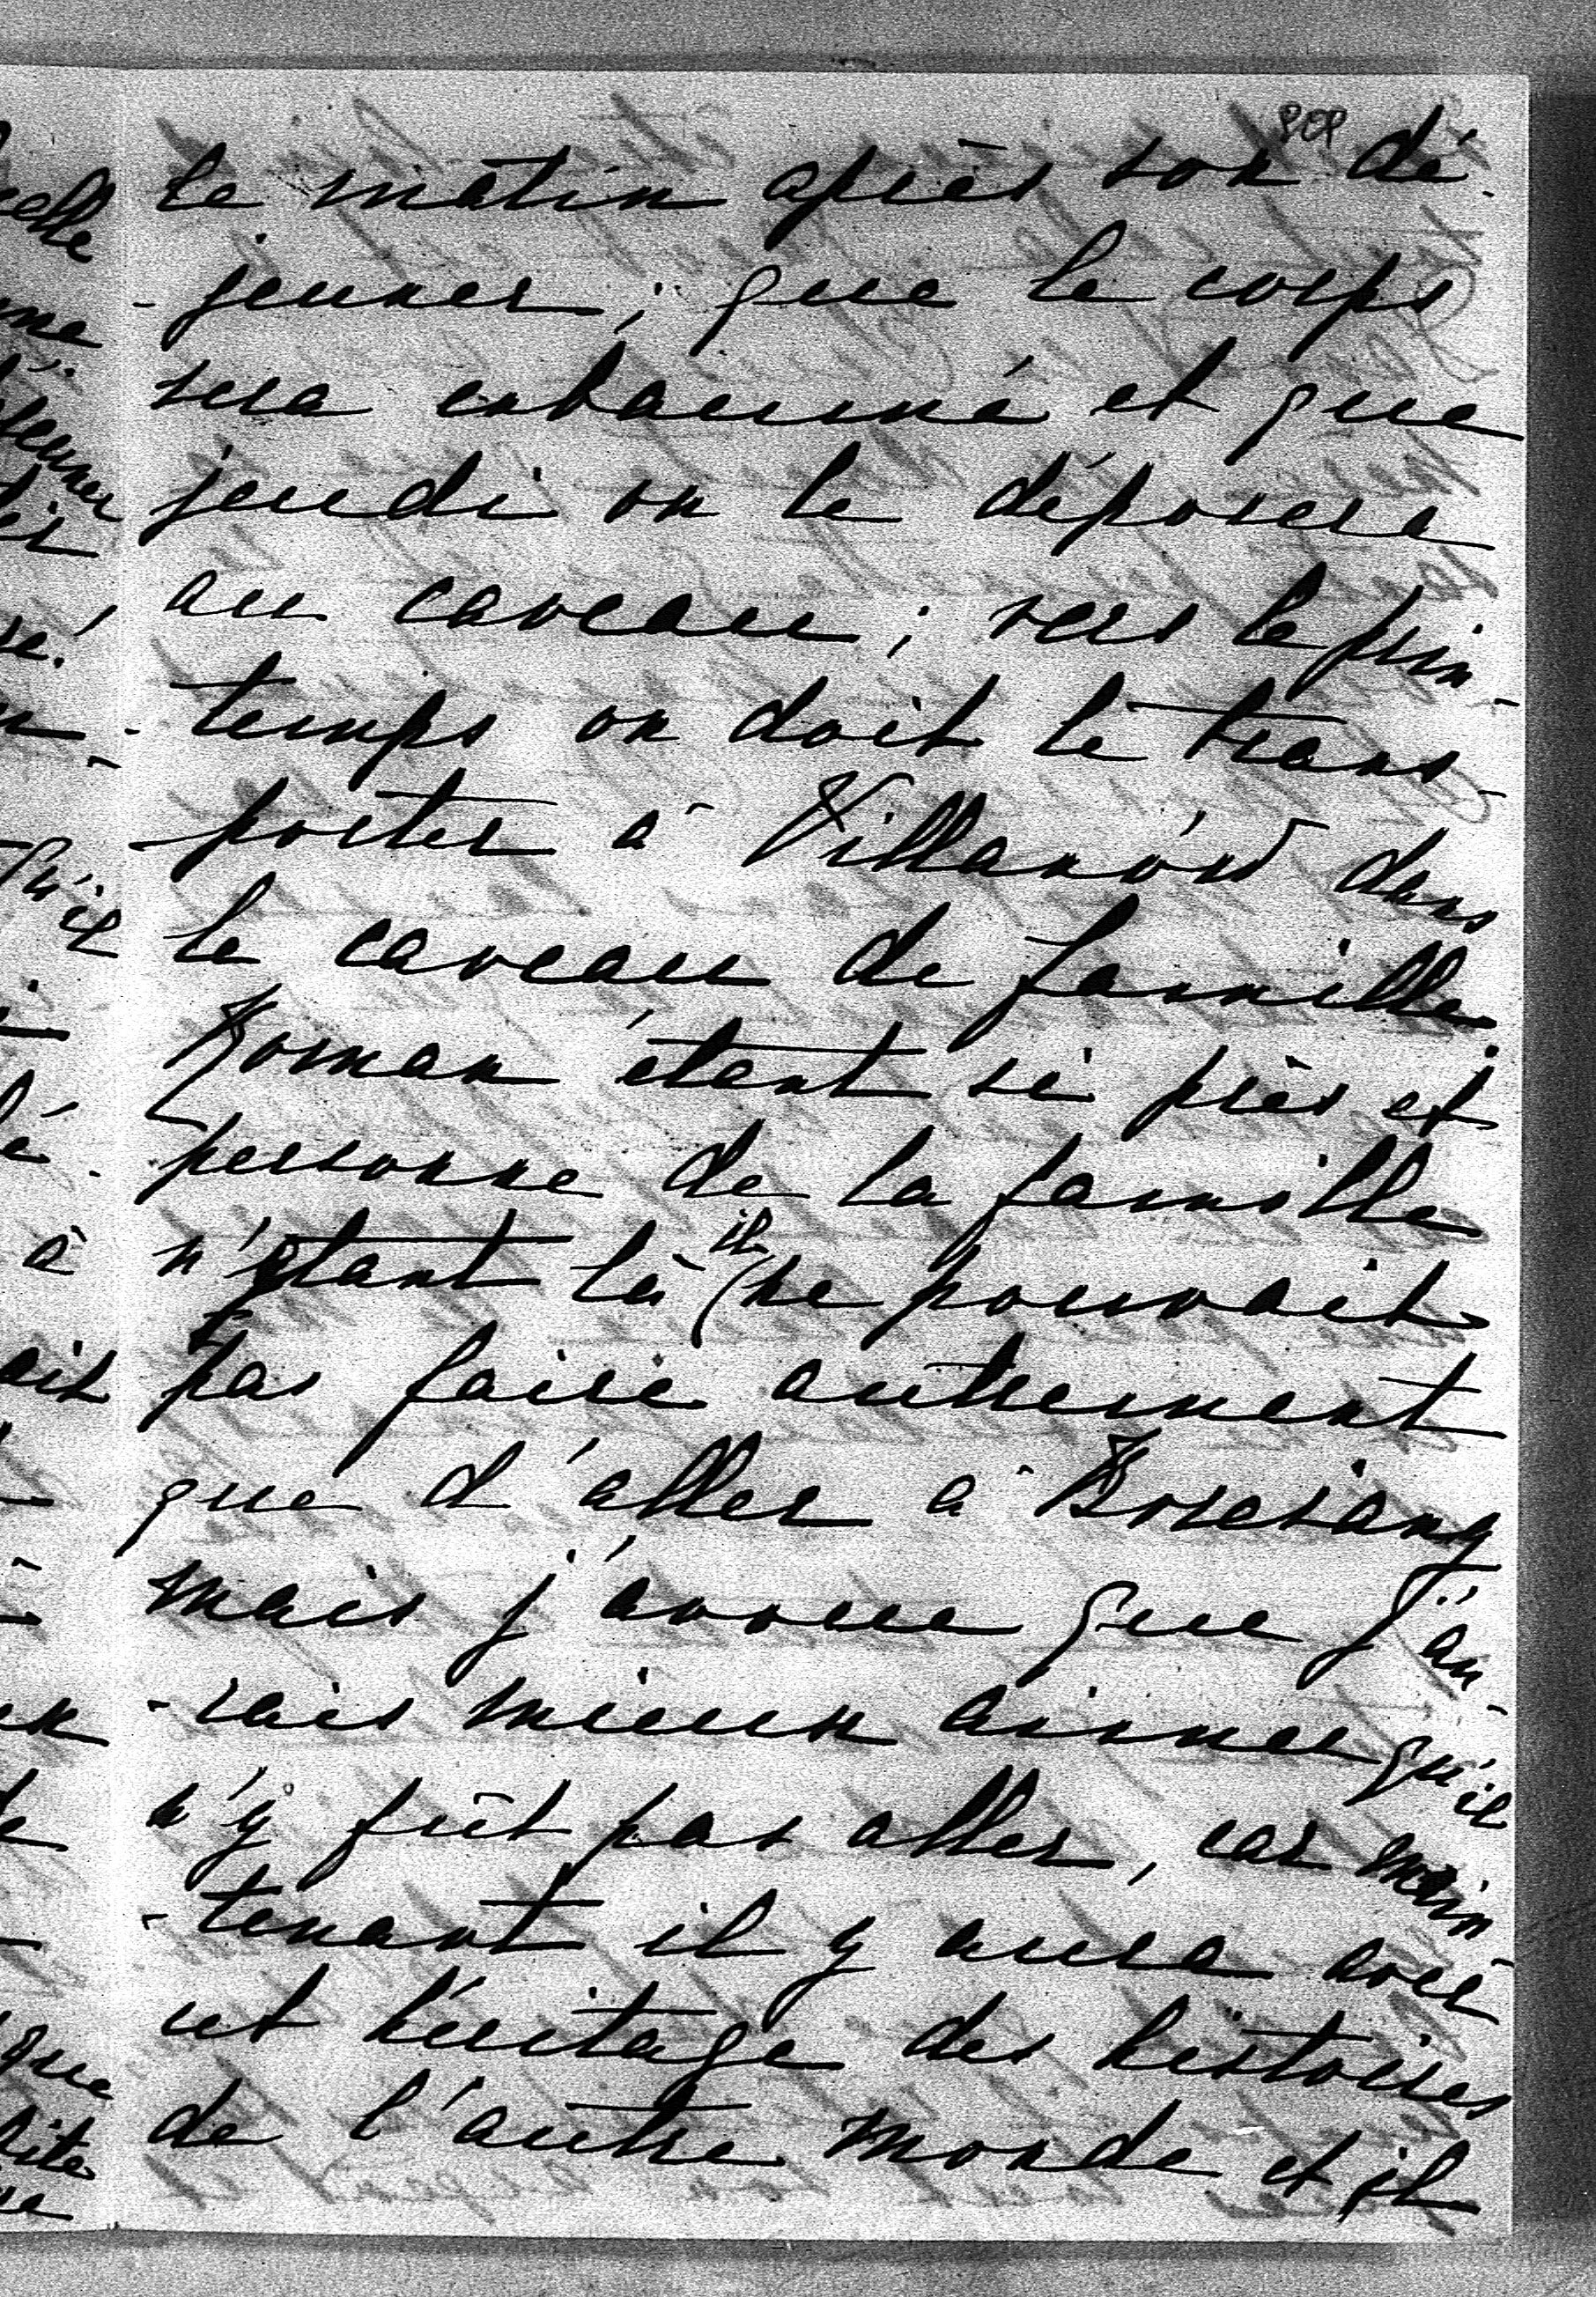 le matin après son dé-
-jeuner; que le corps
sera embaumé et que
jeudi on le déposera
au caveau; vers le prin-
-temps on doit le trans-
-porter à Villanów dans
le caveau de famille.
Roman étant si près et
personne de la famille
n'étant là il ne pouvait
pas faire autrement
que d'aller à
mais j'avoue que j'au-
-rais mieux aimer qu'il
n'y fût pas aller, car main-
-tenant il y aura avec
cet héritage des histoires
de l'autre monde et il